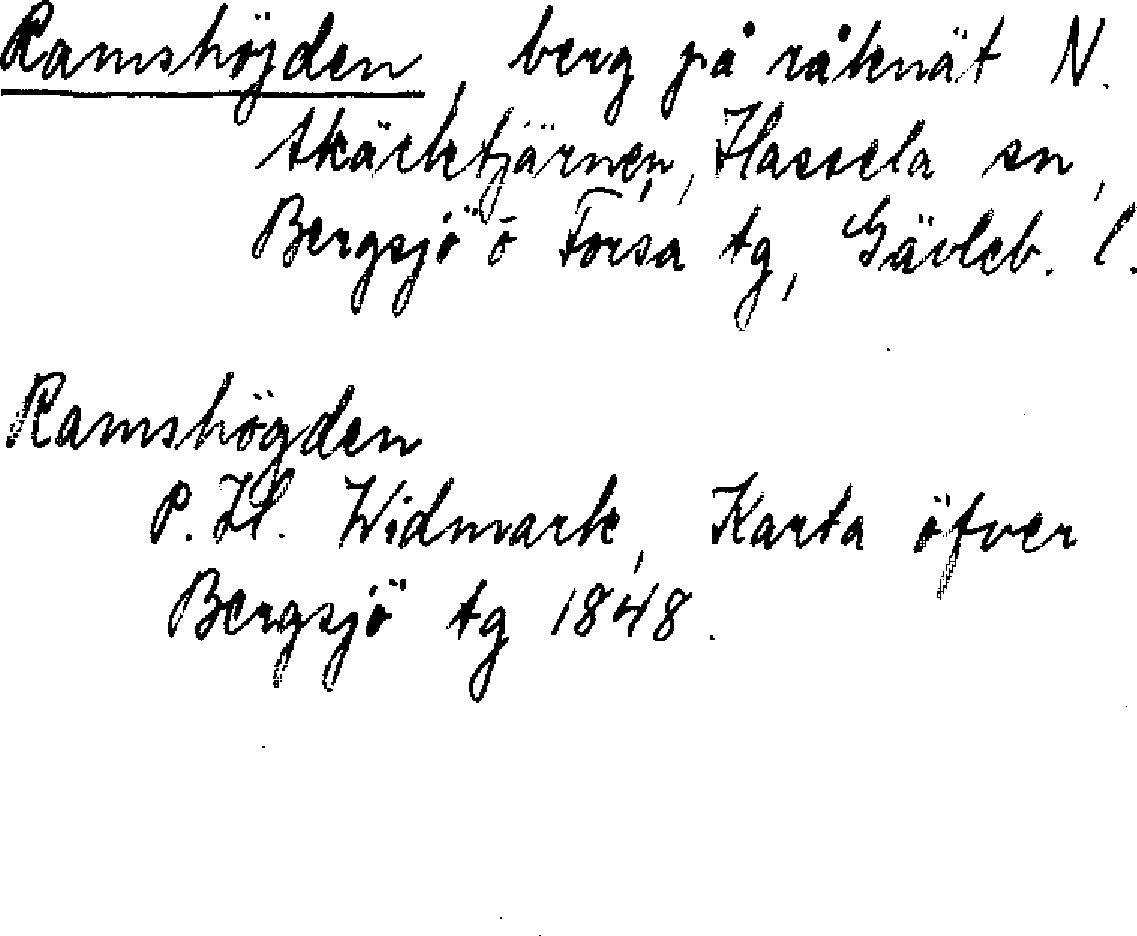 Ramshöjden, berg på råknät N.
Skäcktjärnen, Hassela sn,
Bergsjö o Forsa tg, Gävleb. l.
Ramshögden
P. H. Widmark, Karta öfver
Bergsjö tg 1848.